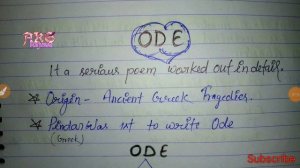 ARS
ODE
It a serious poem worked out in detail.
* Origin - Ancient Greek Tragedies.
* Pindar was 1st to write Ode
(Greek)
ODE
Subscribe